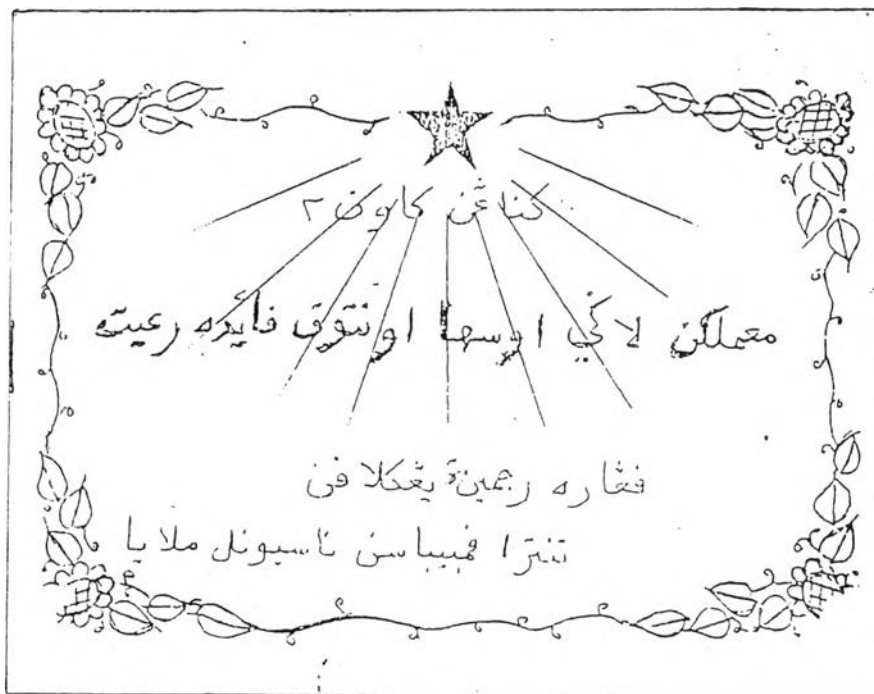 كناڠن كاون٢
معملكن لاݢي اوسها اونتوق فائده رعيت
ڤڠاره رجمينة يڠكلاڤن
تنترا ڤمبيباسن ناسيونل ملايا